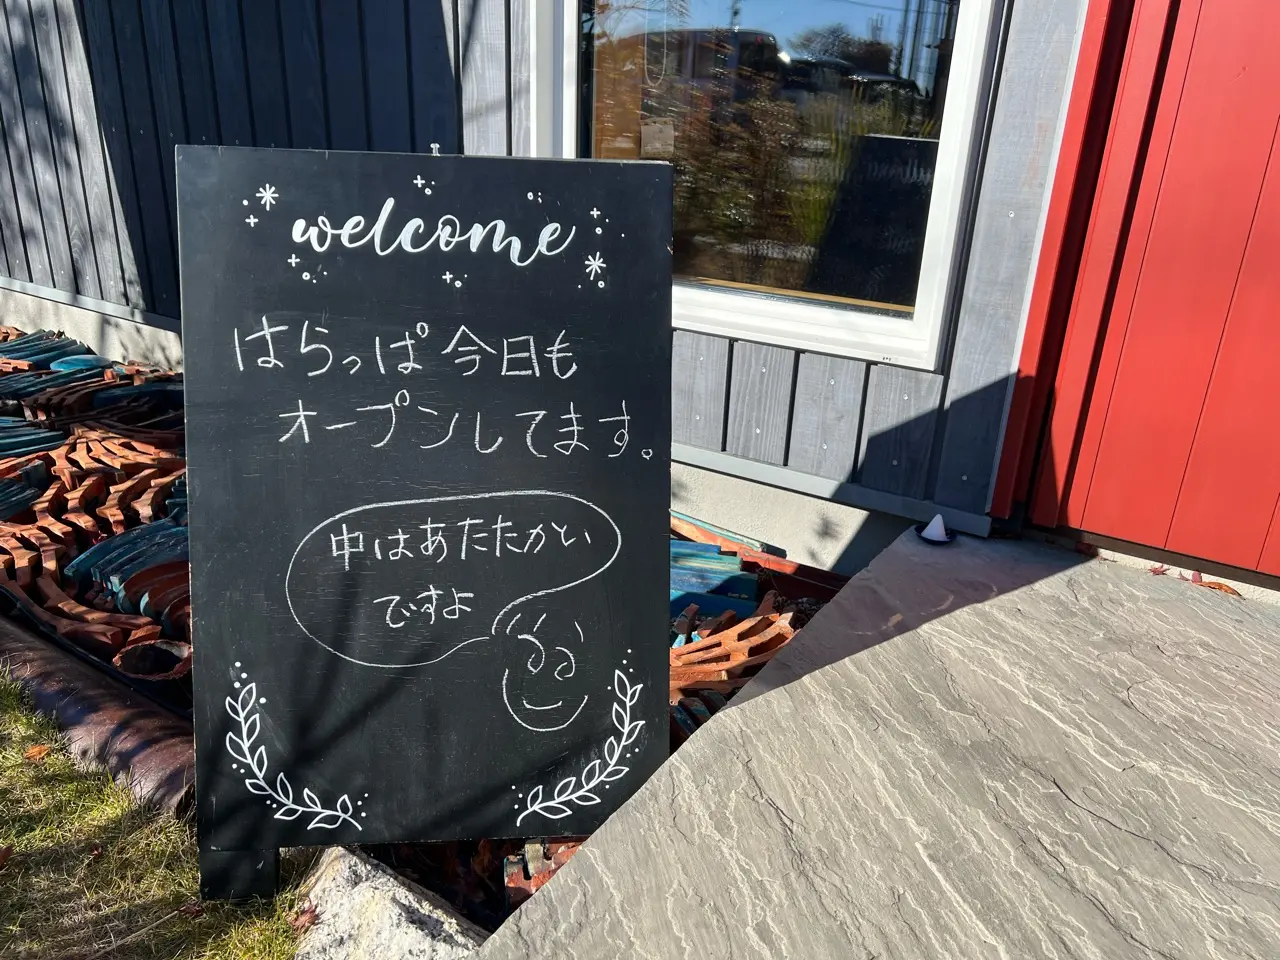 welcome
はらっぱ今日も
オープンしてます。
中はあたたかい
ですよ